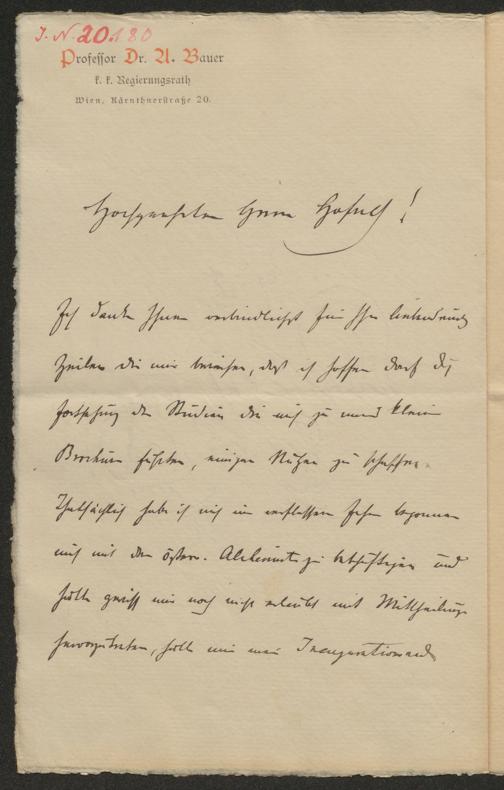 J. N. 20.180
Professor Dr. A. Bauer
k. k. Regierungsrath
Wien, Kärnthnerstraße 20.
Hochgeehrter Herr Hofrath!
Ich danke Ihnen verbindlichst für Ihre
Zeilen die mir beweisen, daß ich hoffen darf durch
Fortsetzung der Studien die mich zu meiner kleinen
Brochure führten, einigen Nutzen zu schaffen.
Thatsächlich habe ich mich im verflossenen Jahre begonnen
mich mit den österr. Alchemisten zu beschäftigen und
hätte gewiß mir noch nicht erlaubt mit Mittheilungen
hervorzutreten, hätte mir meine